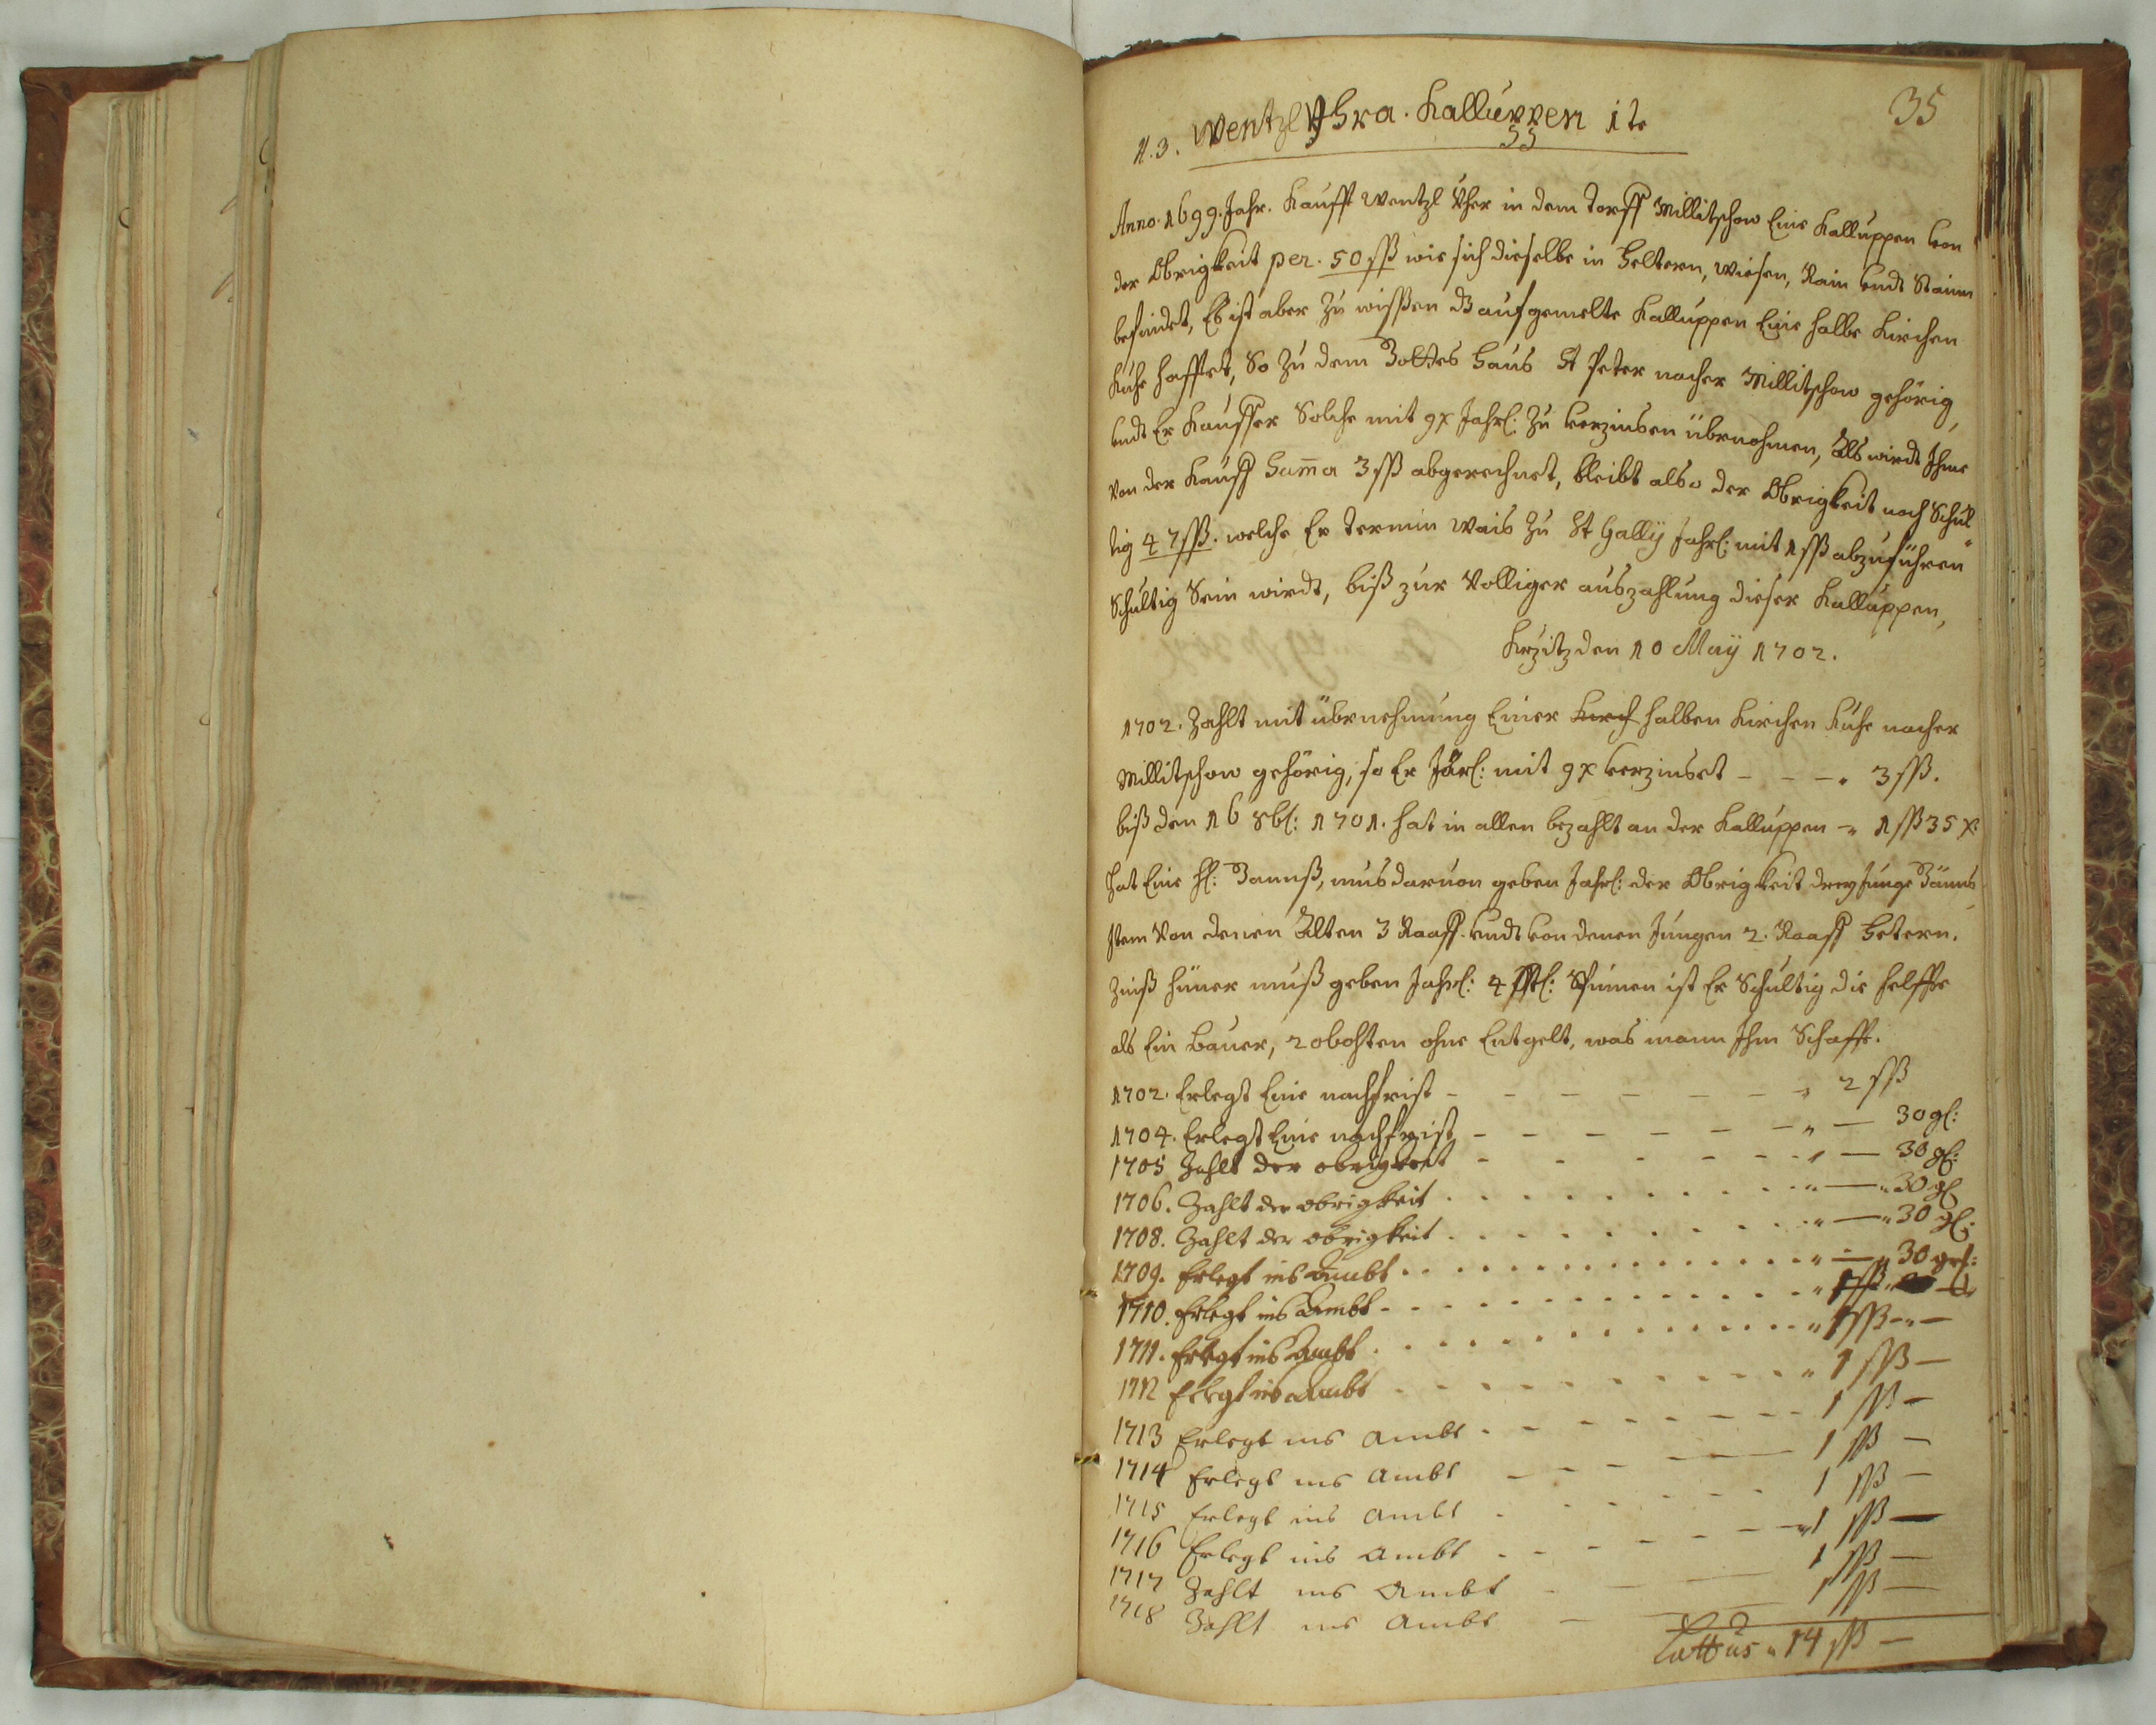 35
N. 3. Wentzl Vhra. Kalluppen 1te
55
Anno. 1699. Jahr. Kaufft Wentzl Vher in dem Dorff Millitschow Eine Kalluppen von
der Obrigkeit per. 50 ßß wie sich dieselbe in Feltern, Wiesen, Rain undt Stainen
befindet, Es ist aber zu wissen dz auf gemelte Kalluppen Eine halbe Kirchen
Kuhe hafftet, So zu dem Gottes Haus St Peter nacher Millitschow gehörig,
undt Er Kauffer Solche mit 9 x Jahrl: zu verzinsen übernohmen, Als wirdt Ihme
von der Kauff Suma 3 ßß abgerechnet, bleibt also der Obrigkeit noch Schul
tig 47 ßß. welche Er Termin Weis zu St Gally Jahrl: mit 1 ßß abzuführen
Schultig Sein wirdt, biß zur Volliger auszahlung dieser Kalluppen,
den 10 May 1702.
1702. Zahlt mit übernehmung Einer Kirch halben Kirchen Kuhe nacher
Millitschow gehörig, so Er Järl: mit 9 x verzinset - - - " 3 ßß.
biß den 16 8b: 1701. hat in allen bezahlt an der Kalluppen - " 1 ßß 35 x
hat Eine Gannß, mus daruon geben Jahrl: der Obrigkeit drey Junge Gänns
Item Von denen Alten 3 Raaff. undt von denen Jungen 2. Raaff Federn.
Zinß Hüner muß geben Jahrl: 4 Spinnen ist Er Schultig die helffte
als Ein Bauer, Robohten ohne Entgelt, was mann Ihm Schafft.
1702. Erlegt Eine nachfrist - - - - - - - " 2 ßß
1704. Erlegt Eine nachfrist - - - - - - " — 30 gl:
1705 Zahlt der obrigkeit - - - - - - " — 30 gl:
1706. Zahlt der obrigkeit . . . . . . . . . " — " 30 gl
1708. Zahlt der obrigkeit . . . . . . . . . " — " 30 gl:
1709. Erlegt ins Ambt . . . . . . . . . . . " — " 30 gr:
1710. Erlegt ins Ambt . . . . . . . . . . . " 1 ßß "
1711. Erlegt ins Ambt . . . . . . . . . . . " 1 ßß - " —
1712 Erlegt ins Ambt . . . . . . . . . . " 1 ßß —
1713 Erlegt ins Ambt - - - - - - - - 1 ßß —
1714 Erlegt ins Ambt - - - - - — 1 ßß —
1715 Erlegt ins Ambt - - - - - - 1 ßß —
1716 Erlegt ins Ambt - - - - - - 1 ßß —
1717 Zahlt ins Ambt - - — 1 ßß —
1718 Zahlt ins Ambt - — 1 ßß —
Lattus " 14 ßß —